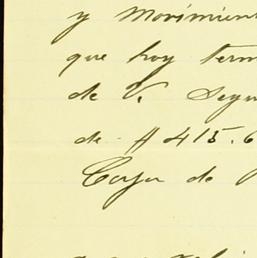 y movimient
que hoy term
de V. Segu
de $ 415.6
Caja de